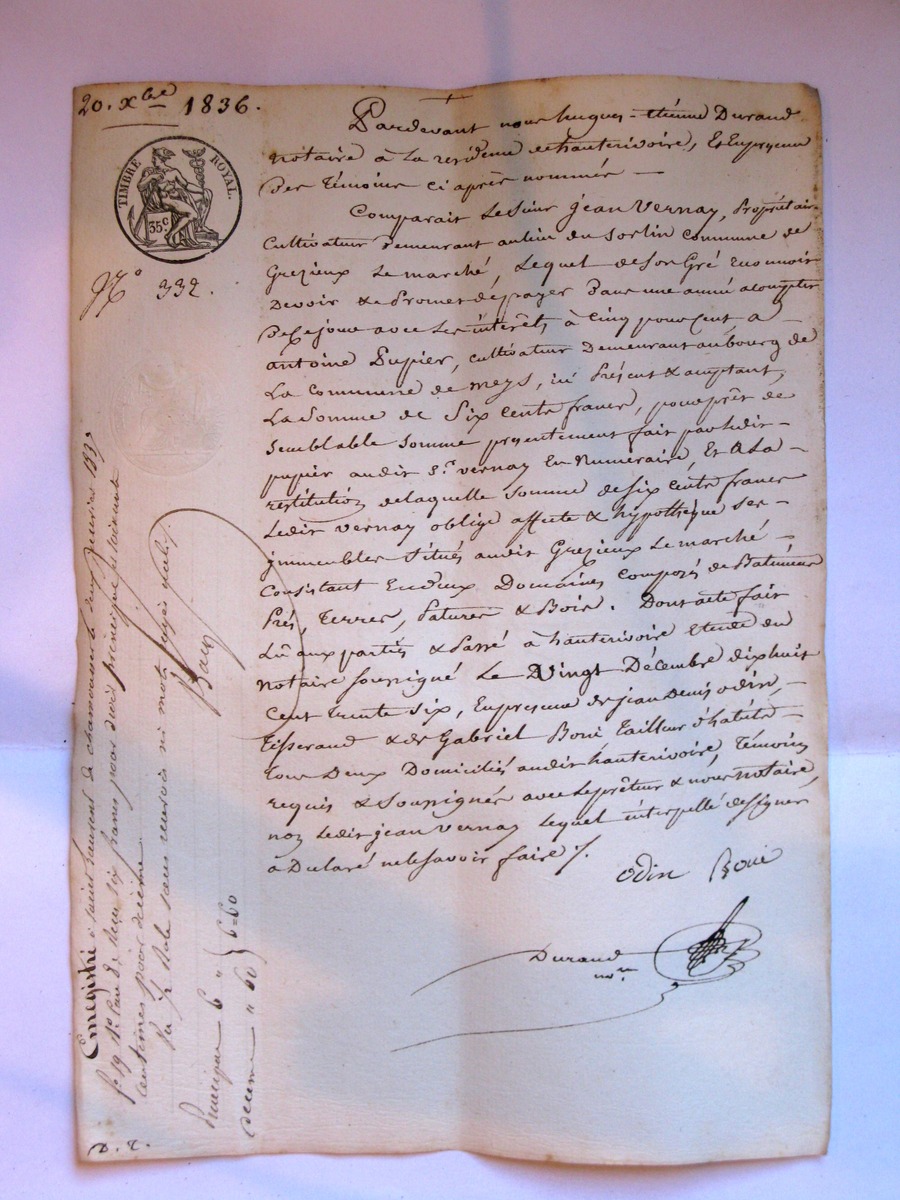 20. Xbre 1836.
TIMBRE ROYAL.
35 c.
N° 332.
Pardevant nous hugues-étienne Durand
notaire à La residence de hauterivoire, Et En presence
Des Témoins ci après nommés —
Comparait Le Sieur jean Vernay, Propriétair-
Cultivateur Demeurant au lieu du Sorlin commune de
Grezieux Le marché, Lequel de Son Gré reconnoit
Devoir & Promet de payer Dans une année a compter
De Ce jour avec Les intérêts à Cinq pour Cent a —
antoine Pupier, Cultivateur Demeurant au bourg de
La Commune de Meys, ici Présent & acceptant,
La Somme de Six Cents francs, pour prêt de
Semblable Somme presentement fait par Ledit
pupier audit Sr. vernay En Numeraire, Et A La-
restitution de laquelle Somme de Six Cents francs
Ledit Vernay oblige affecte & hypothèque Ses —
immeubles Situés audit Grezieux Le marché —
Consistant En Deux Domaines Composés de Batiments
Prés, Terres, Patures & Bois. Dont acte fait
Lû aux parties & Passé à hauterivoire Etude du
notaire Soussigné Le Vingt Décembre dix huit
Cent trente Six, En presence de jean Denis odin,
Tisserand & de Gabriel Boui Tailleur d'habits —
Tous Deux Domiciliés audit hauterivoire, Témoins
requis & Soussignés avec Le prêteur & nous notaire,
non Ledit jean Vernay Lequel interpellé de Signer
à Declaré ne le Savoir faire /.
odin Boui
Durand
nore
Enregistré à saint Laurent de chamousset le deux janvier 1837
fo 19 Ro Case 2, reçu six francs pour droit principal et soixante
centimes pour decime.
Principal 6 "
decime " 60
6=60
D. t.